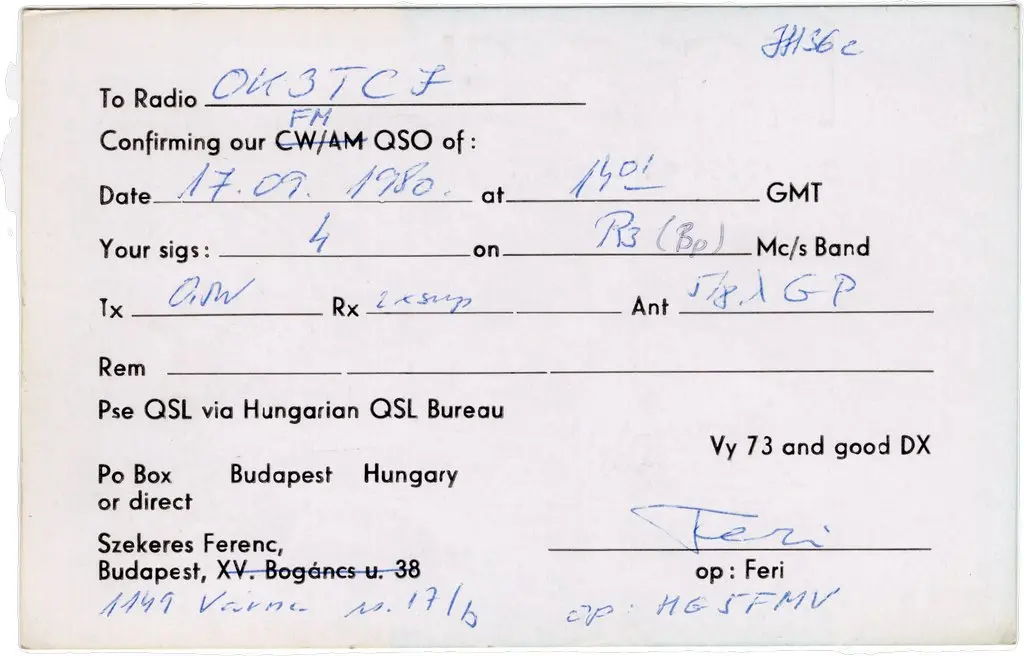 JH36c
To Radio OK3TCJ
FM
Confirming our CW/AM QSO of:
Date 17.09. 1980. at 1401 GMT
Your sigs: 4 on R3 (Bp) Mc/s Band
Tx Rx Ant 5/8 λ GP
Rem
Pse QSL via Hungarian QSL Bureau
Vy 73 and good DX
Po Box Budapest Hungary
or direct
Feri
Szekeres Ferenc,
Budapest, XV. Bogáncs u. 38
op: Feri
1149 Varna u. 17/b op: HG5FMV